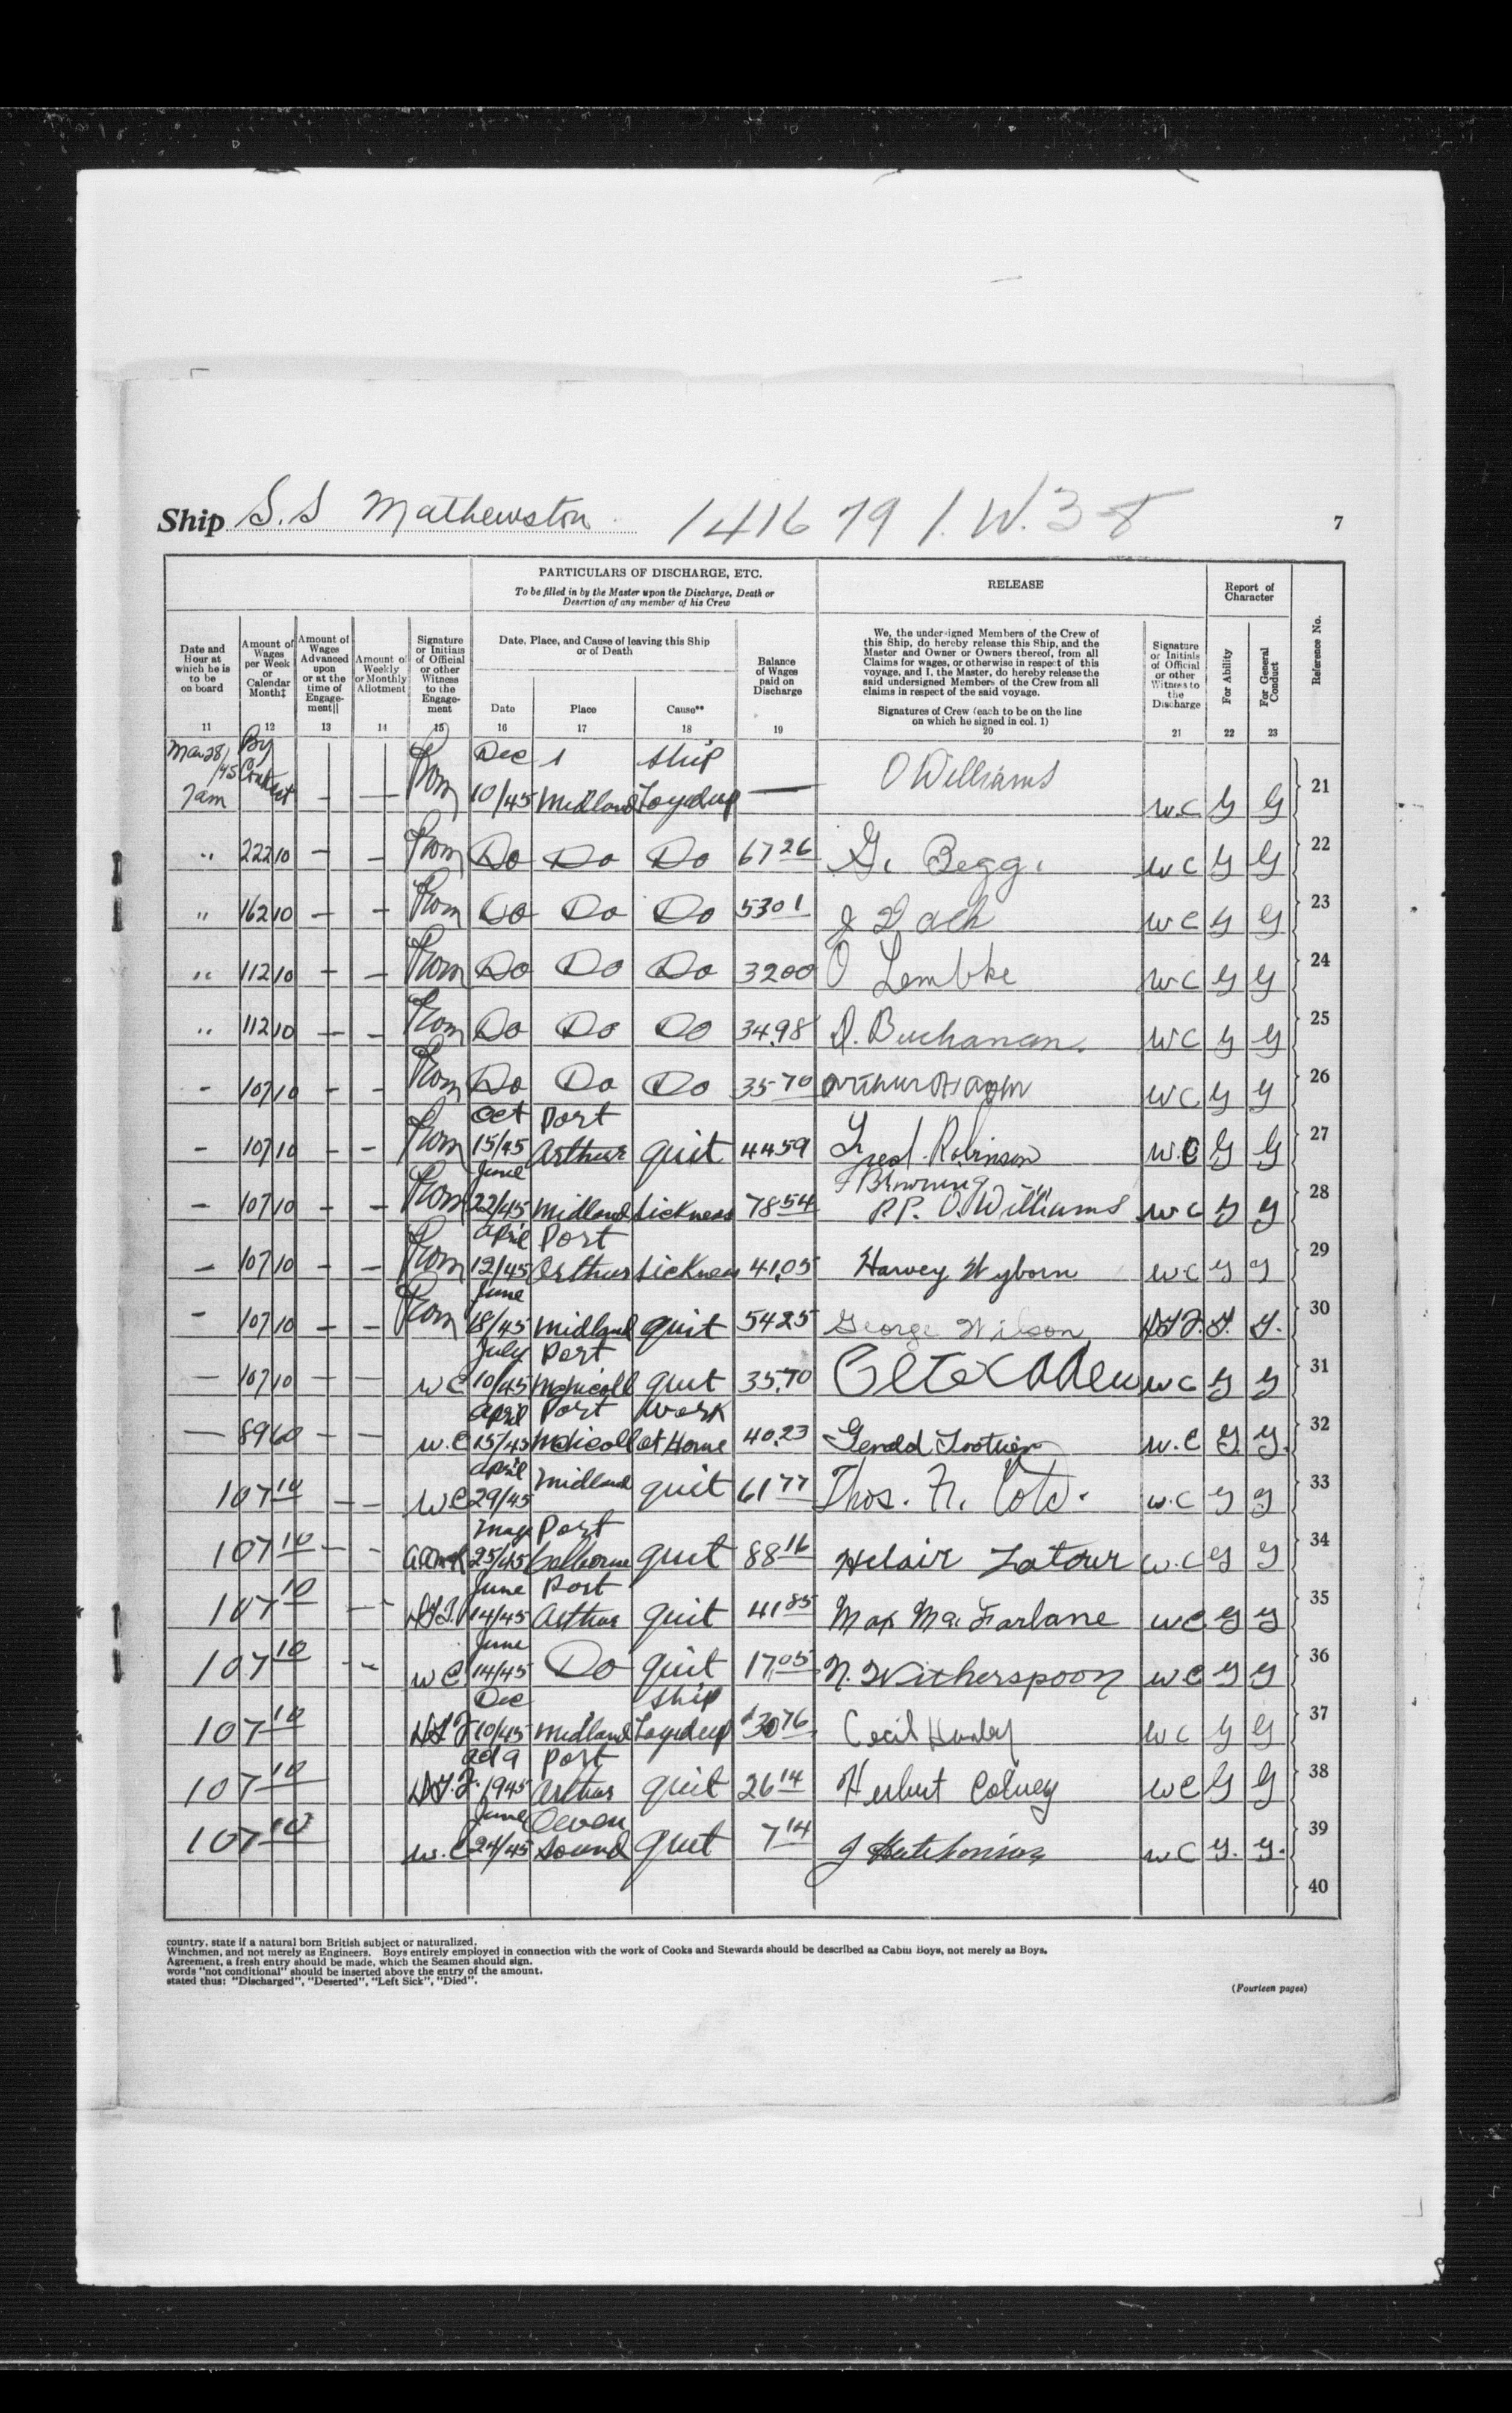 Ship S.S Mathewston 141679 I.W.38 7
PARTICULARS OF DISCHARGE, ETC.
To be filled in by the Master upon the Discharge, Death or
Desertion of any member of his Crew
RELEASE
Report of
Character
Reference No.
Date and
Hour at
which he is
to be
on board
Amount of
Wages
per Week
or
Calendar
Month‡
Amount of
Wages
Advanced
upon
or at the
time of
Engage-
ment||
Amount of
Weekly
or Monthly
Allotment
Signature
or Initials
of Official
or other
Witness
to the
Engage-
ment
Date, Place, and Cause of leaving this Ship
or of Death
Date Place Cause**
Balance
of Wages
paid on
Discharge
We, the undersigned Members of the Crew of
this Ship, do hereby release this Ship, and the
Master and Owner or Owners thereof, from all
Claims for wages, or otherwise in respect of this
voyage, and I, the Master, do hereby release the
said undersigned Members of the Crew from all
claims in respect of the said voyage.
Signatures of Crew (each to be on the line
on which he signed in col. 1)
Signature
or Initials
of Official
or other
Witness to
the
Discharge
For Ability
For General
Conduct
11 12 13 14 15 16 17 18 19 20 21 22 23
Mar 28/45 7am By Contract — — Dec 10/45 Midland Ship Layed up — O Williams W.C G G 21
" 222 10 — — Do Do Do 67 26 G. Begg. W C G G 22
" 162 10 — — Do Do Do 5301 W C G G 23
" 112 10 — — Do Do Do 3200 O Lembke W C G G 24
" 112 10 — — Do Do Do 34.98 D. Buchanan. W C G G 25
- 107 10 - - Do Do Do 35 70 W C G G 26
- 107 10 - - Oct 15/45 Port Arthur quit 4459 Fred Robinson W.C G G 27
- 107 10 - - June 22/45 Midland Sickness 78 54 F Browning P.P. O. Williams W C G G 28
- 107 10 - - April 12/45 Port Arthur Sickness 41.05 Harvey Wyborn W C G G 29
- 107 10 - - June 18/45 Midland quit 5425 George Wilson G. G. 30
— 107 10 — — W C July 10/45 Port McNicoll quit 35.70 W C G G 31
— 89 60 — — W.C April 15/45 Port McNicoll Work at Home 40.23 W.C G. G. 32
107 10 — — W C April 29/45 Midland quit 61 77 W.C G G 33
107 10 — - May 25/45 Port Colborne quit 88 16 Hilair Latour W.C G G 34
107 10 — - June 14/45 Port Arthur quit 41 85 Max Mac Farlane W C G G 35
107 10 - - W C June 14/45 Do quit 17.05 N. Witherspoon W C G G 36
107 10 Dec 10/45 Midland Ship Layed up $30 76 W C G G 37
107 10 1945 Port Arthur quit 26 14 W C G G 38
107 10 W.C June 24/45 Owen Sound quit 7 14 J Hutchinson W C G. G. 39
40
country, state if a natural born British subject or naturalized.
Winchmen, and not merely as Engineers. Boys entirely employed in connection with the work of Cooks and Stewards should be described as Cabin Boys, not merely as Boys.
Agreement, a fresh entry should be made, which the Seamen should sign.
words "not conditional" should be inserted above the entry of the amount.
stated thus: "Discharged", "Deserted", "Left Sick", "Died".
(Fourteen pages)